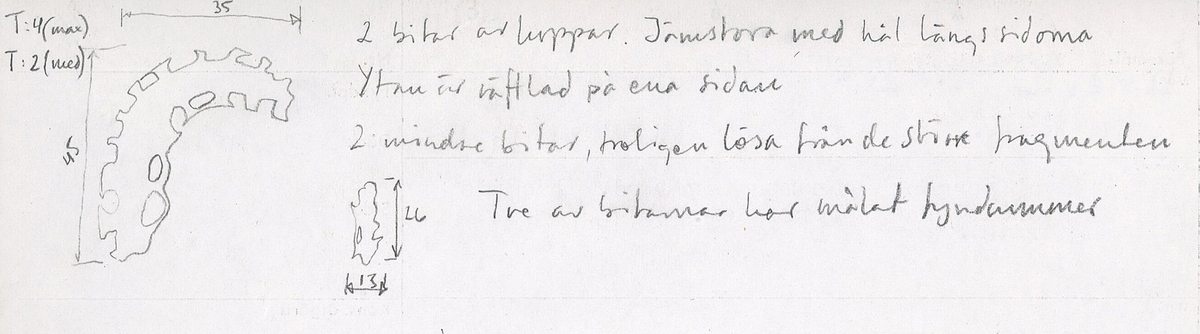 35
T:4(max)
T:2(med)
45
2 bitar av koppar. Jämstora med hål längs sidorna
Ytan är räfflad på ena sidan
2 mindre bitar, troligen lösa från de större fragmenten
26
Tre av bitarnar har målat fyndnummer
13